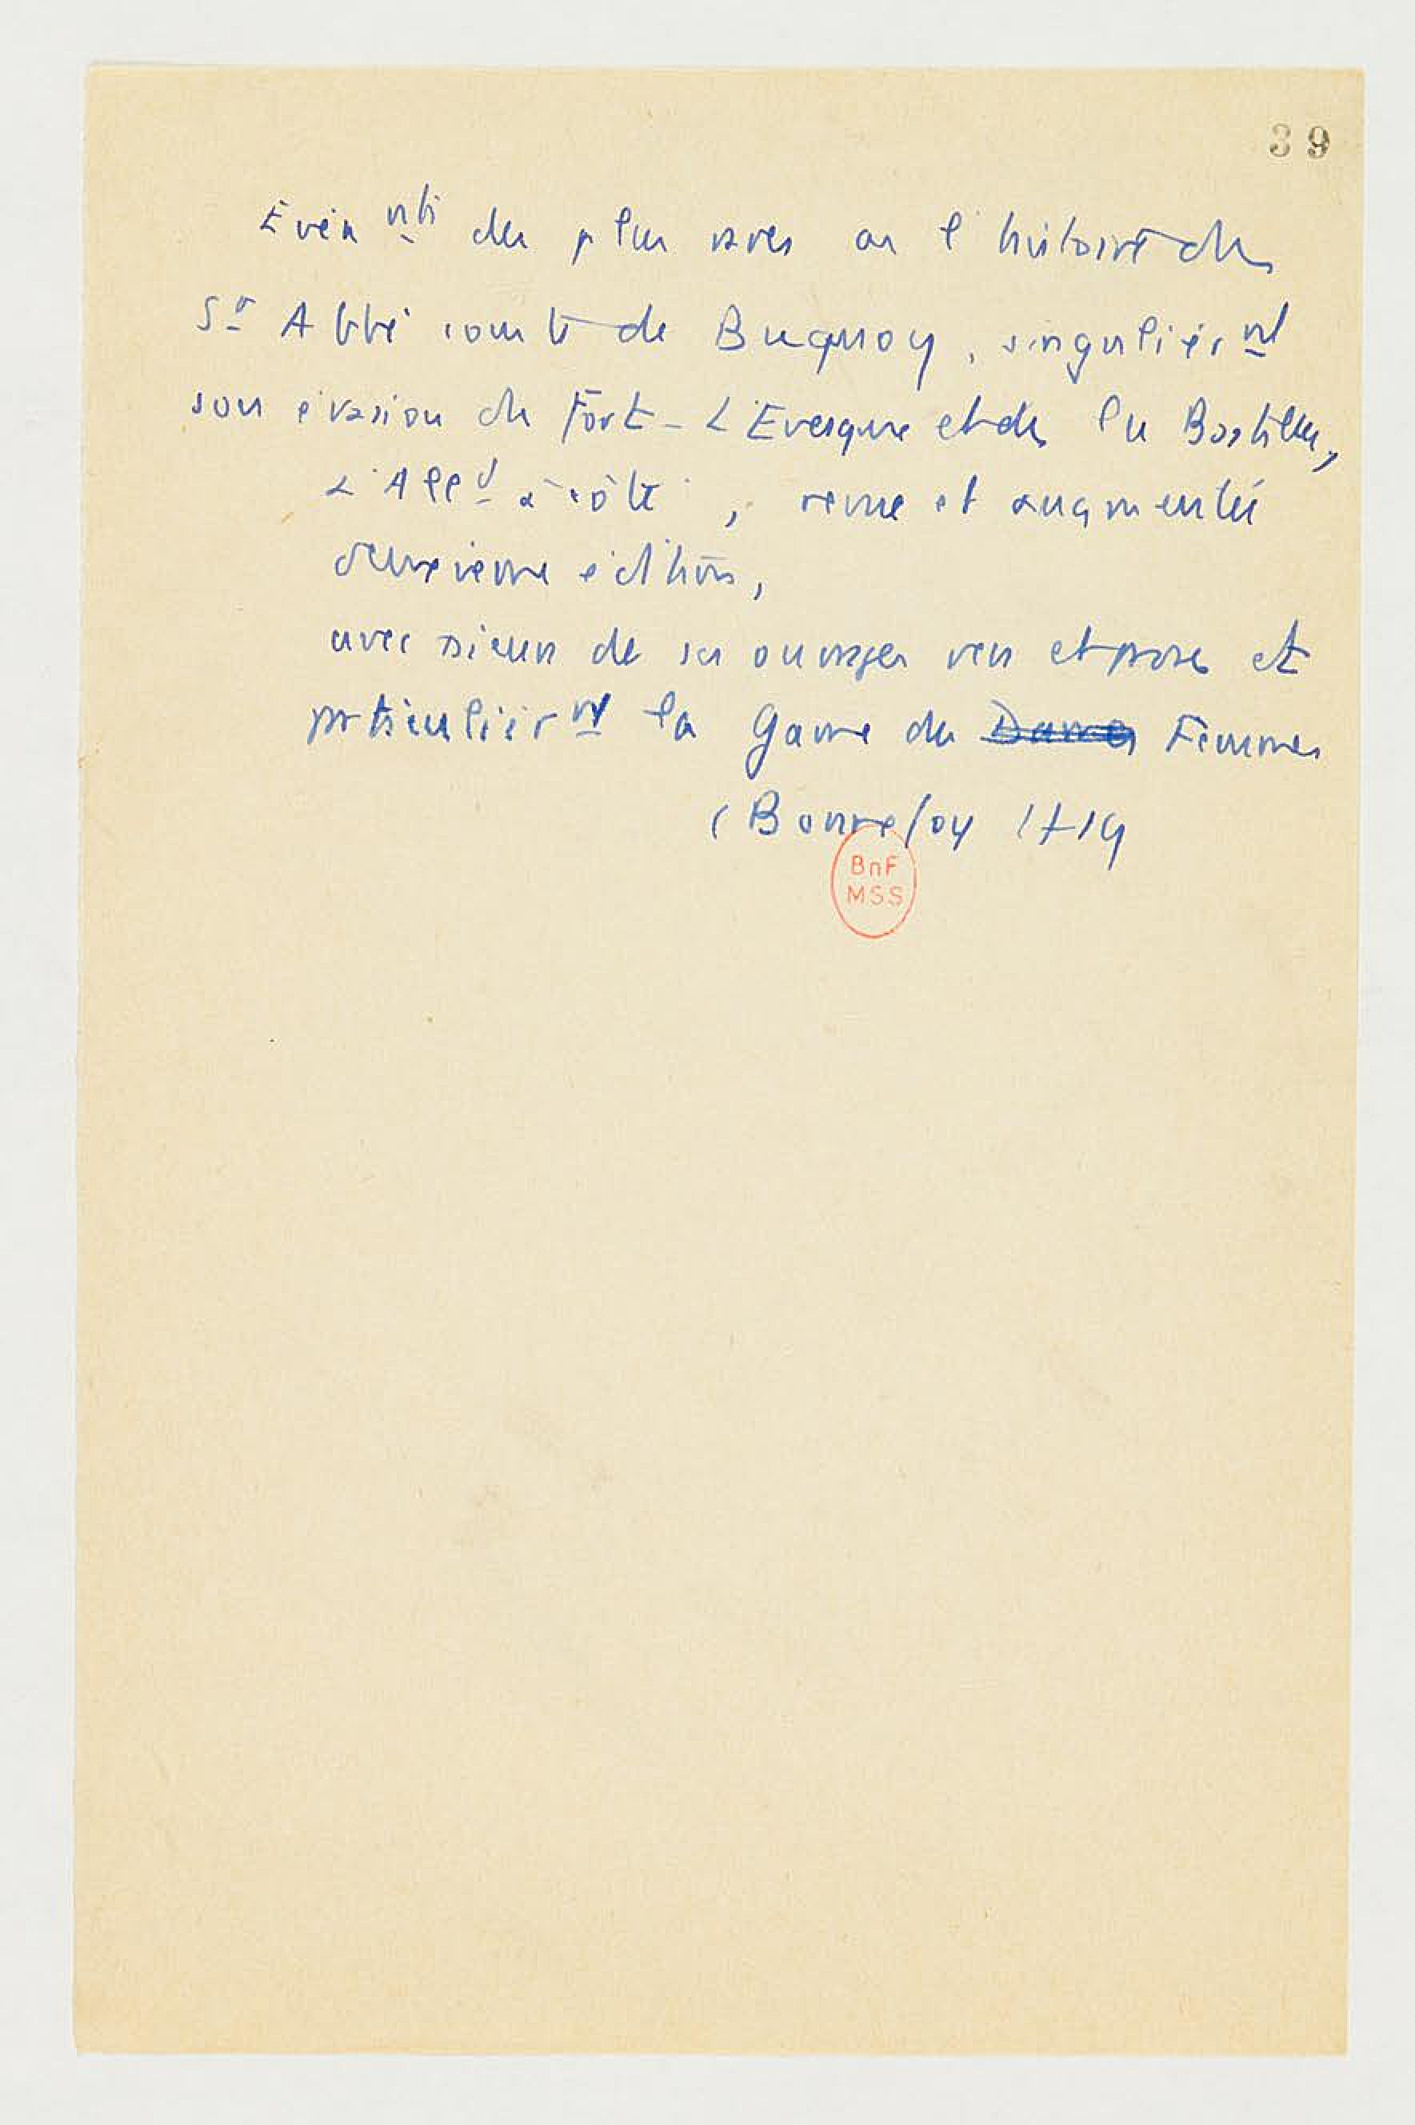 39
Evén nts des plus rares ou l'histoire du
Sr Abbé comte de Buquoy, singulièr nt
son évasion du Fort-L'Evesque et de la Bastille,
L'All d à côté, revue et augmentée
deuxieme édition,
avec de ses ouvrages vers et prose et
particulièr nt la Game des Dames Femmes
(Bonnefoy 1719
BnF
MSS